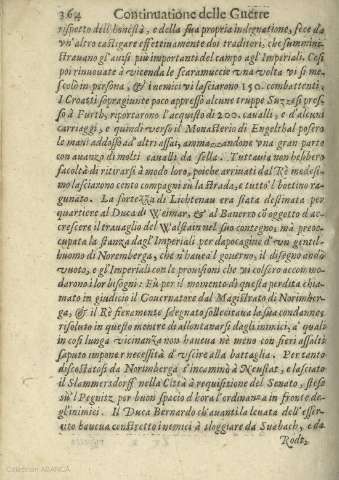 364 Continuatione delle Guerre
rispetto dell'honestà, e della sua propria indegnatione, fece da
vn'altro castigare effettiuamente doi traditori, che sommini-
strauano gl'auisi più importanti del campo agl'Imperiali. Così
poi rinuouate à vicenda le scaramuccie vna volta vi si me-
scolò in persona, & i nemici vi lasciarono 150. combattenti,
I Croatti sopragiunte poco appresso alcune truppe Suzzesi pres-
so à Furth, riportarono l'acquisto di 200. caualli, e d'alcuni
carriaggi, e quindi verso il Monasterio di Engelthal posero
le mani addosso ad altri assai, ammazzandone vna gran parte
con auanzo di molti caualli da sella. Tuttauia non hebbero
facoltà di ritirarsi à modo loro, poiche arriuati dal Rè medesi-
mo lasciarono cento compagni su la strada, e tutto'l bottino ra-
gunato. La fortezza di Lichtenau era stata destinata per
quartiere al Duca di Weimar, & al Banerro cō oggetto d'ac-
crescere il trauaglio del Walstain nel suo contegno, mà preoc-
cupata la stanza dagl'Imperiali per dapocagine d'vn gentil-
huomo di Noremberga, che n'haueua'l gouerno, il disegno andò
vuoto, e gl'Imperiali con le prouisioni che vi colsero accommo-
darono i lor bisogni: Fù per il momento di questa perdita chia-
mato in giudicio il Gouernatore dal Magistrato di Norimber-
ga, & il Rè fieramente sdegnato sollecitaua la sua condanna,
risoluto in questo mentre di allontanarsi dagl'inimici, a' quali
in così lunga vicinanza non haueua nè meno con fieri assalti
saputo imponer necessità d'vscire alla battaglia. Per tanto
discostatosi da Norimberga s'incaminò à Neustat, e lasciato
il Slammersdorff nella Città à requisitione del Senato, stese
su'l Pegnitz per buon spacio d'hora l'ordinanza in fronte de-
gl'inimici. Il Duca Bernardo ch'auanti la leuata dell'esser-
cito haueua constretto i nemici à sloggiare da Suabach, e da
Rodt,
Colección ABANCA